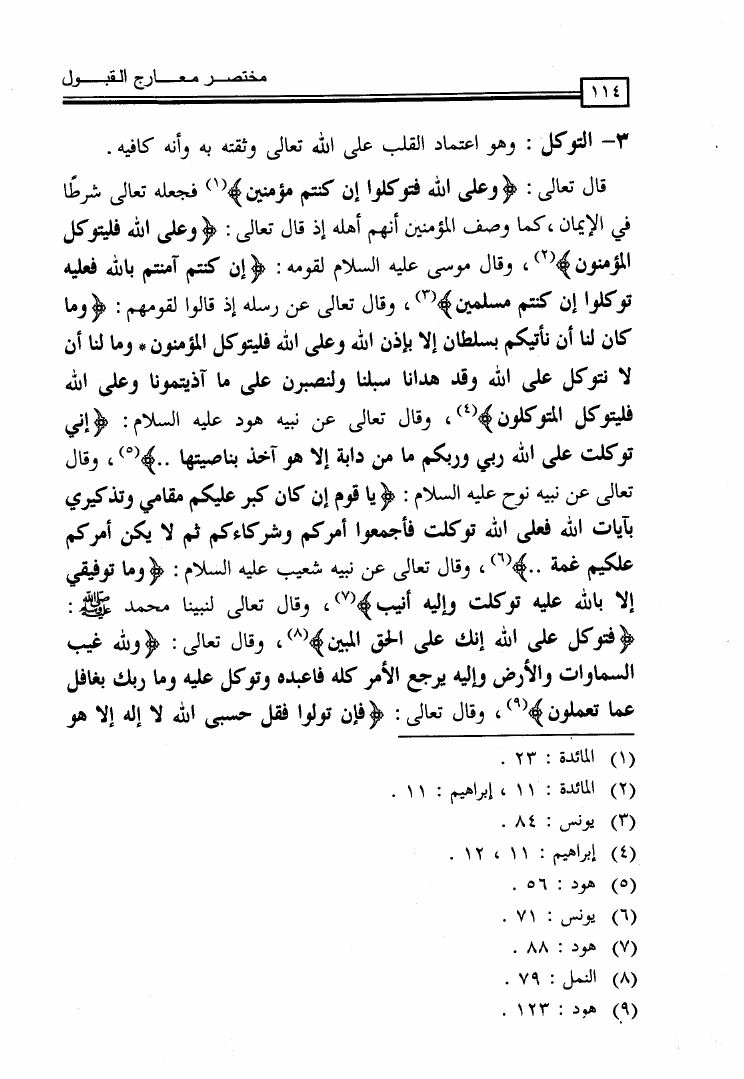 مختصر معارج القبول
١١٤
٣- التوكل : وهو اعتماد القلب على الله تعالى وثقته به وأنه كافيه .
قال تعالى : ﴿وعلى الله فتوكلوا إن كنتم مؤمنين﴾(١) فجعله تعالى شرطًا
في الإيمان ،كما وصف المؤمنين أنهم أهله إذ قال تعالى : ﴿وعلى الله فليتوكل
المؤمنون﴾(٢) ، وقال موسى عليه السلام لقومه : ﴿إن كنتم آمنتم بالله فعليه
توكلوا إن كنتم مسلمين﴾(٣) ، وقال تعالى عن رسله إذ قالوا لقومهم : ﴿وما
كان لنا أن نأتيكم بسلطان إلا بإذن الله وعلى الله فليتوكل المؤمنون * وما لنا أن
لا نتوكل على الله وقد هدانا سبلنا ولنصبرن على ما آذيتمونا وعلى الله
فليتوكل المتوكلون﴾(٤) ، وقال تعالى عن نبيه هود عليه السلام : ﴿إني
توكلت على الله ربي وربكم ما من دابة إلا هو آخذ بناصيتها ..﴾(٥) ، وقال
تعالى عن نبيه نوح عليه السلام : ﴿يا قوم إن كان كبر عليكم مقامي وتذكيري
بآيات الله فعلى الله توكلت فأجمعوا أمركم وشركاءكم ثم لا يكن أمركم
علكيم غمة ..﴾(٦) ، وقال تعالى عن نبيه شعيب عليه السلام : ﴿وما توفيقي
إلا بالله عليه توكلت وإليه أنيب﴾(٧) ، وقال تعالى لنبينا محمد ﷺ :
﴿فتوكل على الله إنك على الحق المبين﴾(٨) ، وقال تعالى : ﴿ولله غيب
السماوات والأرض وإليه يرجع الأمر كله فاعبده وتوكل عليه وما ربك بغافل
عما تعملون﴾(٩) ، وقال تعالى : ﴿فإن تولوا فقل حسبي الله لا إله إلا هو
(١) المائدة : ٢٣ .
(٢) المائدة : ١١ ، إبراهيم : ١١ .
(٣) يونس : ٨٤ .
(٤) إبراهيم : ١١ ، ١٢ .
(٥) هود : ٥٦ .
(٦) يونس : ٧١ .
(٧) هود : ٨٨ .
(٨) النمل : ٧٩ .
(٩) هود : ١٢٣ .